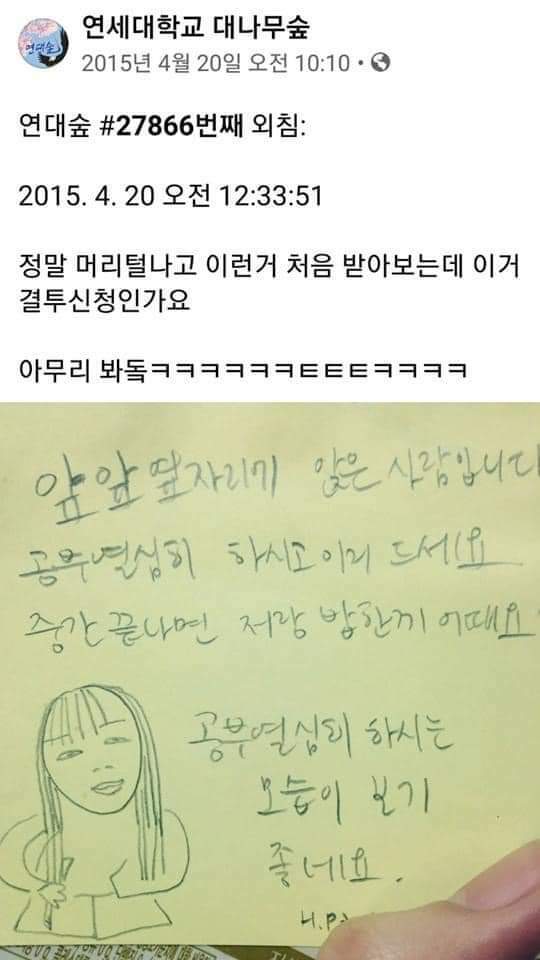 연세대학교 대나무숲
2015년 4월 20일 오전 10:10 ·
연대숲 #27866번째 외침:
2015. 4. 20 오전 12:33:51
정말 머리털나고 이런거 처음 받아보는데 이거
결투신청인가요
아무리 봐돜ㅋㅋㅋㅋㅋㅋㅌㅌㅌㅋㅋㅋㅋ
앞앞 옆자리기 앉은 사람입니다
공부열심히 하시고이리 드세요
중간 끝나면 저랑 밥한끼 어때요
공부열심히 하시는
모습이 보기
좋네요.